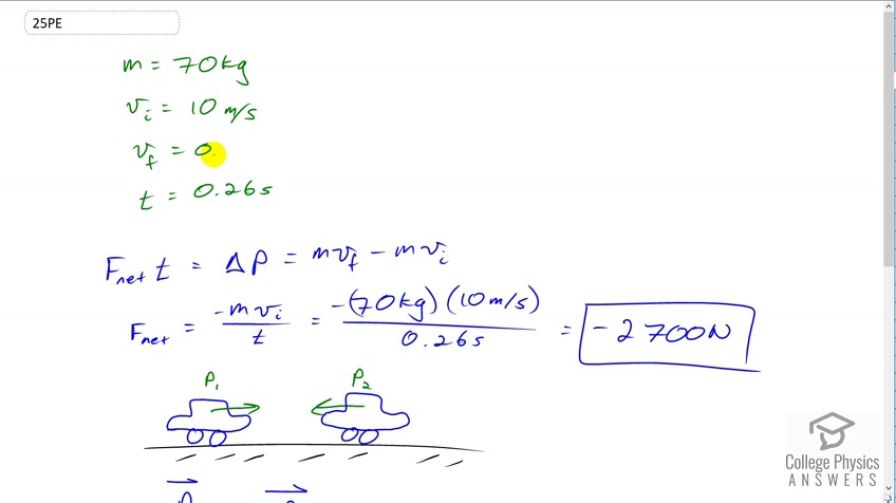 25PE
m = 70kg
v_i = 10 m/s
v_f = 0.
t = 0.26s
F_net t = ΔP = mv_f - mv_i
F_net = -mv_i / t = -(70kg)(10m/s) / 0.26s = -2700N
P_1 P_2
College Physics
ANSWERS